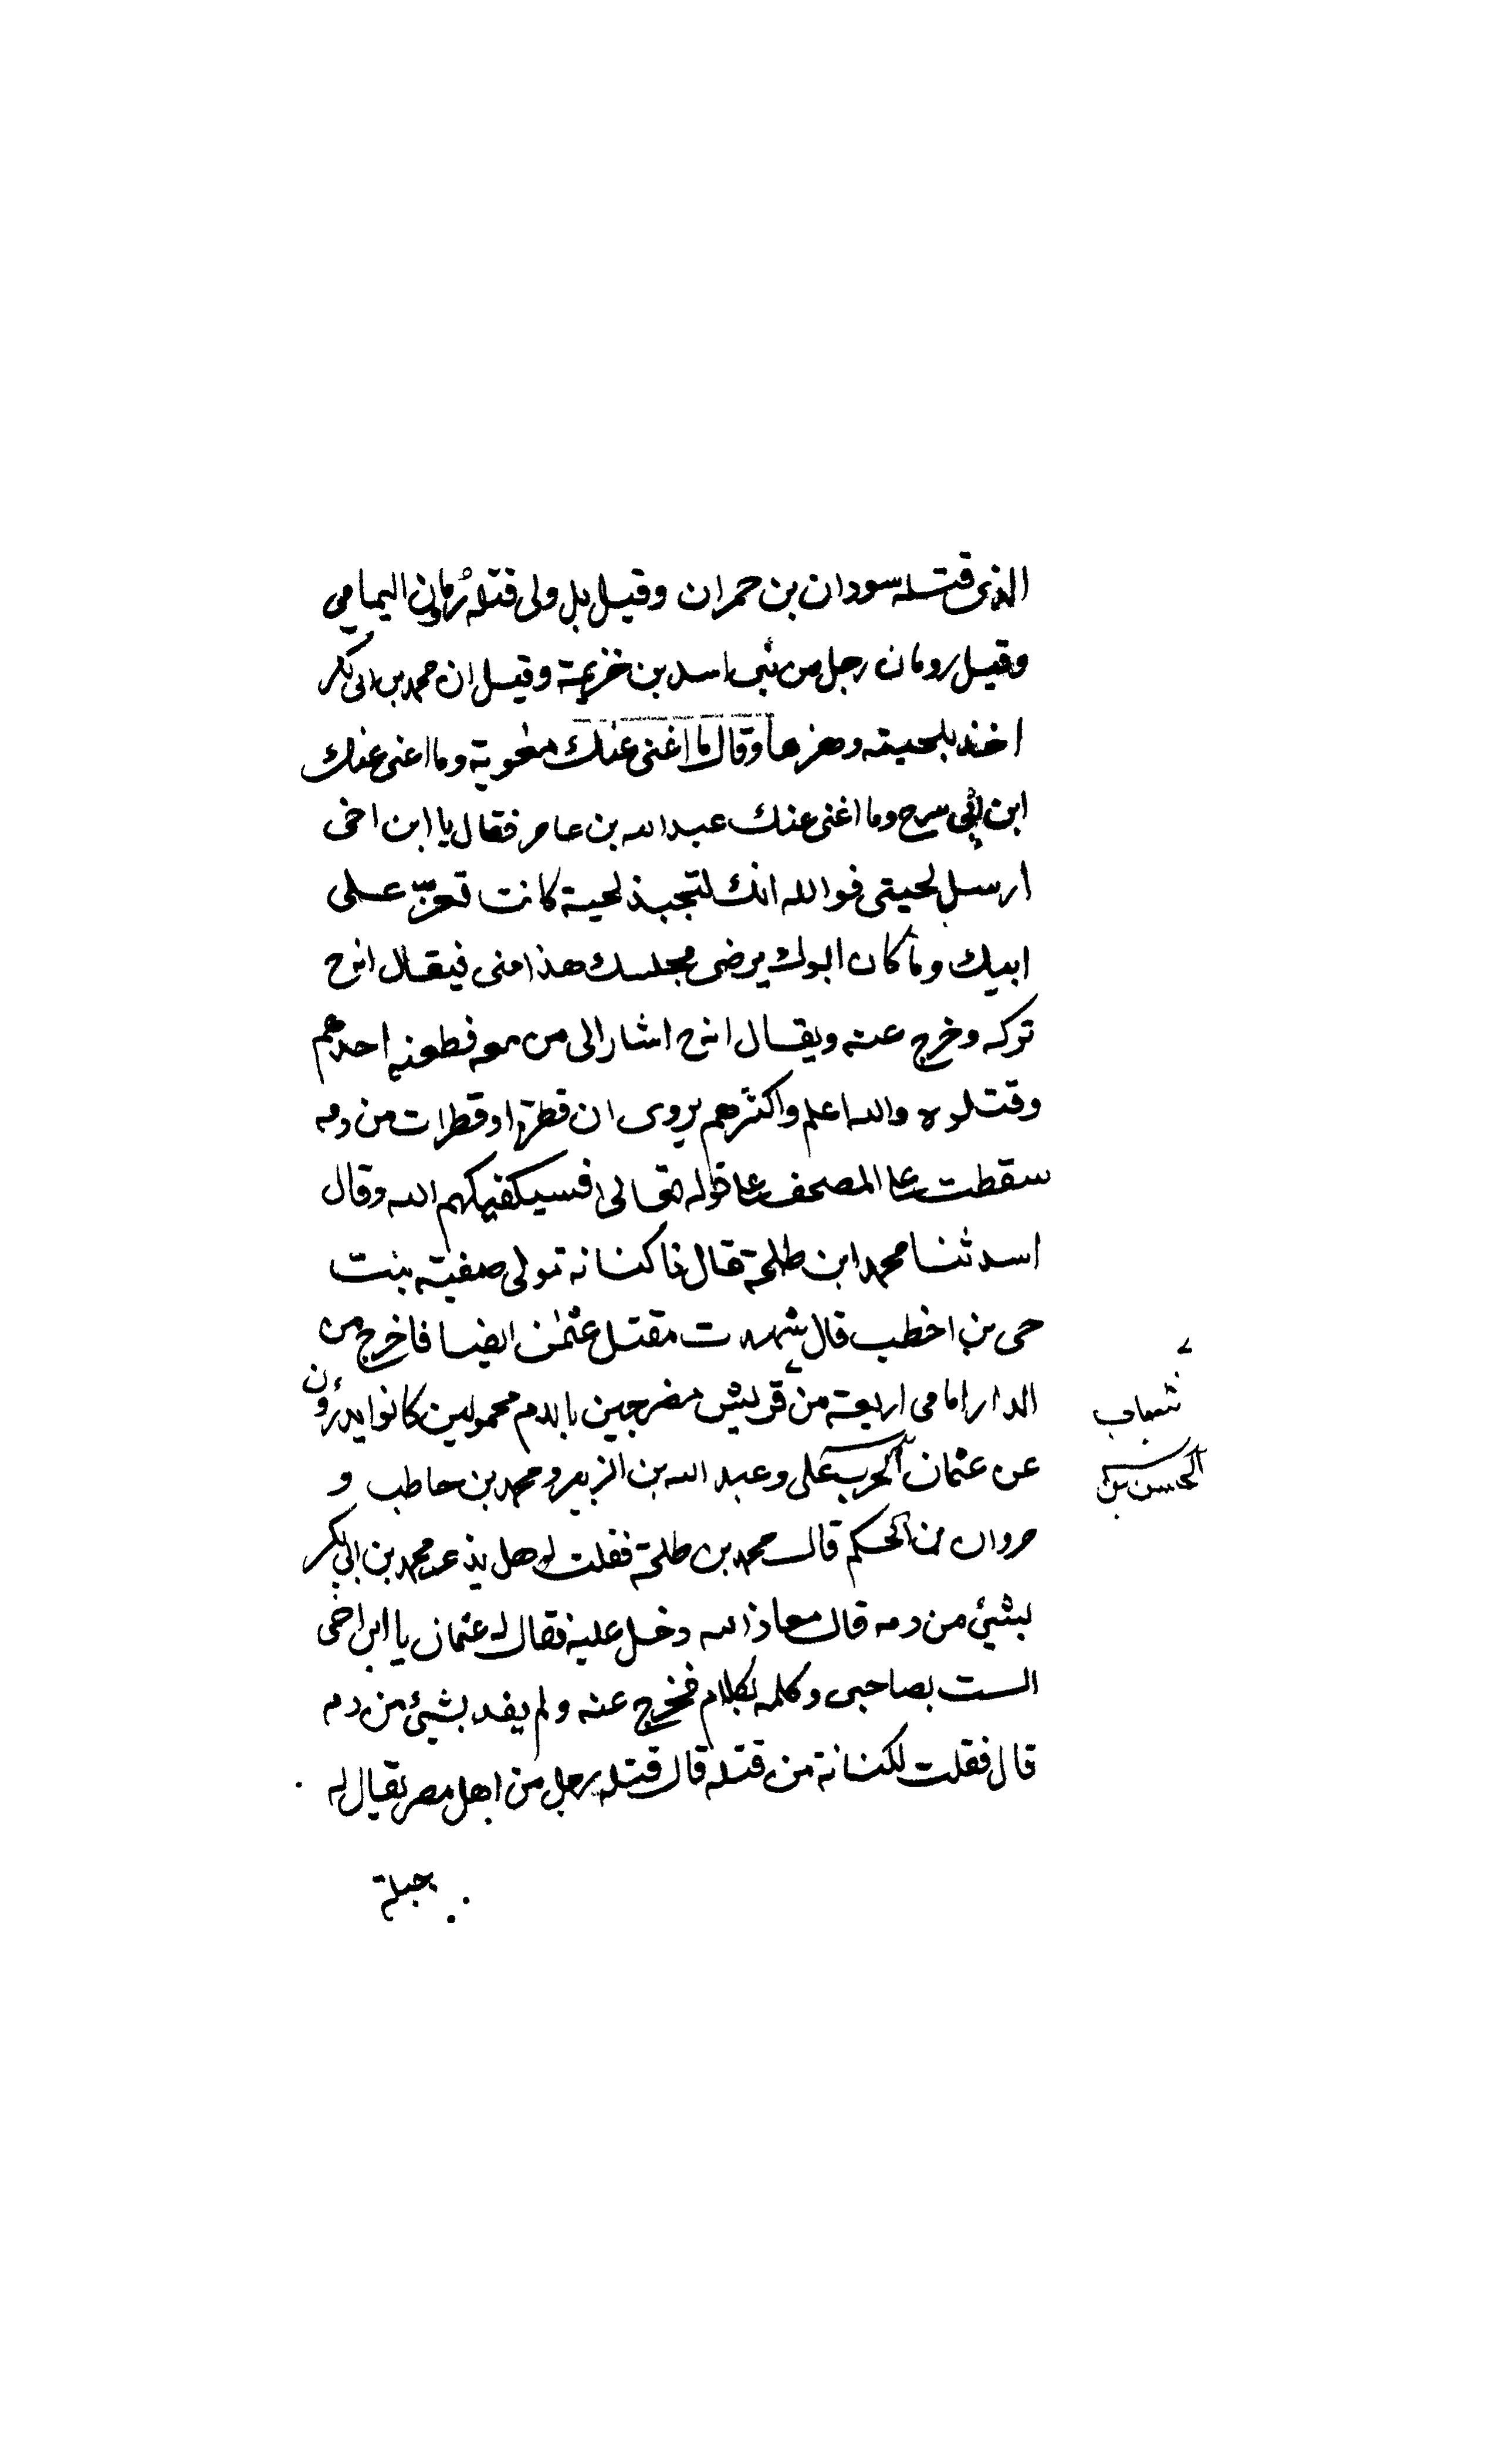 الذى قتله سودان بن حمران وقيل بل ولى قتله رُمان اليمامي
وقيل رومان رجل من بنى اسد بن خزيمة وقيل ان محمد بن ابى بكر
اخذ بلحيته وهزها وقال ما اغنى عنك معوية وما اغنى عنك
ابن ابى سرح وما اغنى عنك عبد الله بن عامر فقال يا ابن اخى
ارسل لحيتى فوالله انك لتجبذ لحية كانت تعزّ على
ابيك وما كان ابوك يرضى مجلسك هذا منى فيقال انه ح
تركه وخرج عنه ويقال انه ح اشار الى من معه فطعنه احدهم
وقتلوه والله اعلم واكثرهم يروى ان قطرة او قطرات من دمه
سقطت على المصحف على قوله تعالى فسيكفيكهم الله وقال
اسد ثنا محمد ابن طلحة قال نا كنانة مولى صفية بنت
حى بن اخطب قال شهدت مقتل عثمٰن ايضا فاخرج من
الدار امامى اربعة من قريش مضرجين بالدم محمولين كانوا يدرؤن
عن عثمان الحرب على وعبد الله بن الزبير ومحمد بن حاطب و
مروان بن الحكم قال محمد بن طلحة فقلت له هل محمد بن ابى بكر
بشيئ من دمه قال معاذ الله دخل عليه فقال له عثمان يا ابن اخى
الست بصاحبى وكلمه بكلام فخرج عنه ولم يفد بشيئ من دمه
قال فقلت لكنانة من قتله قال قتله رجل من اهل مصر يقال له
جبلة
شباب
الحسن بن